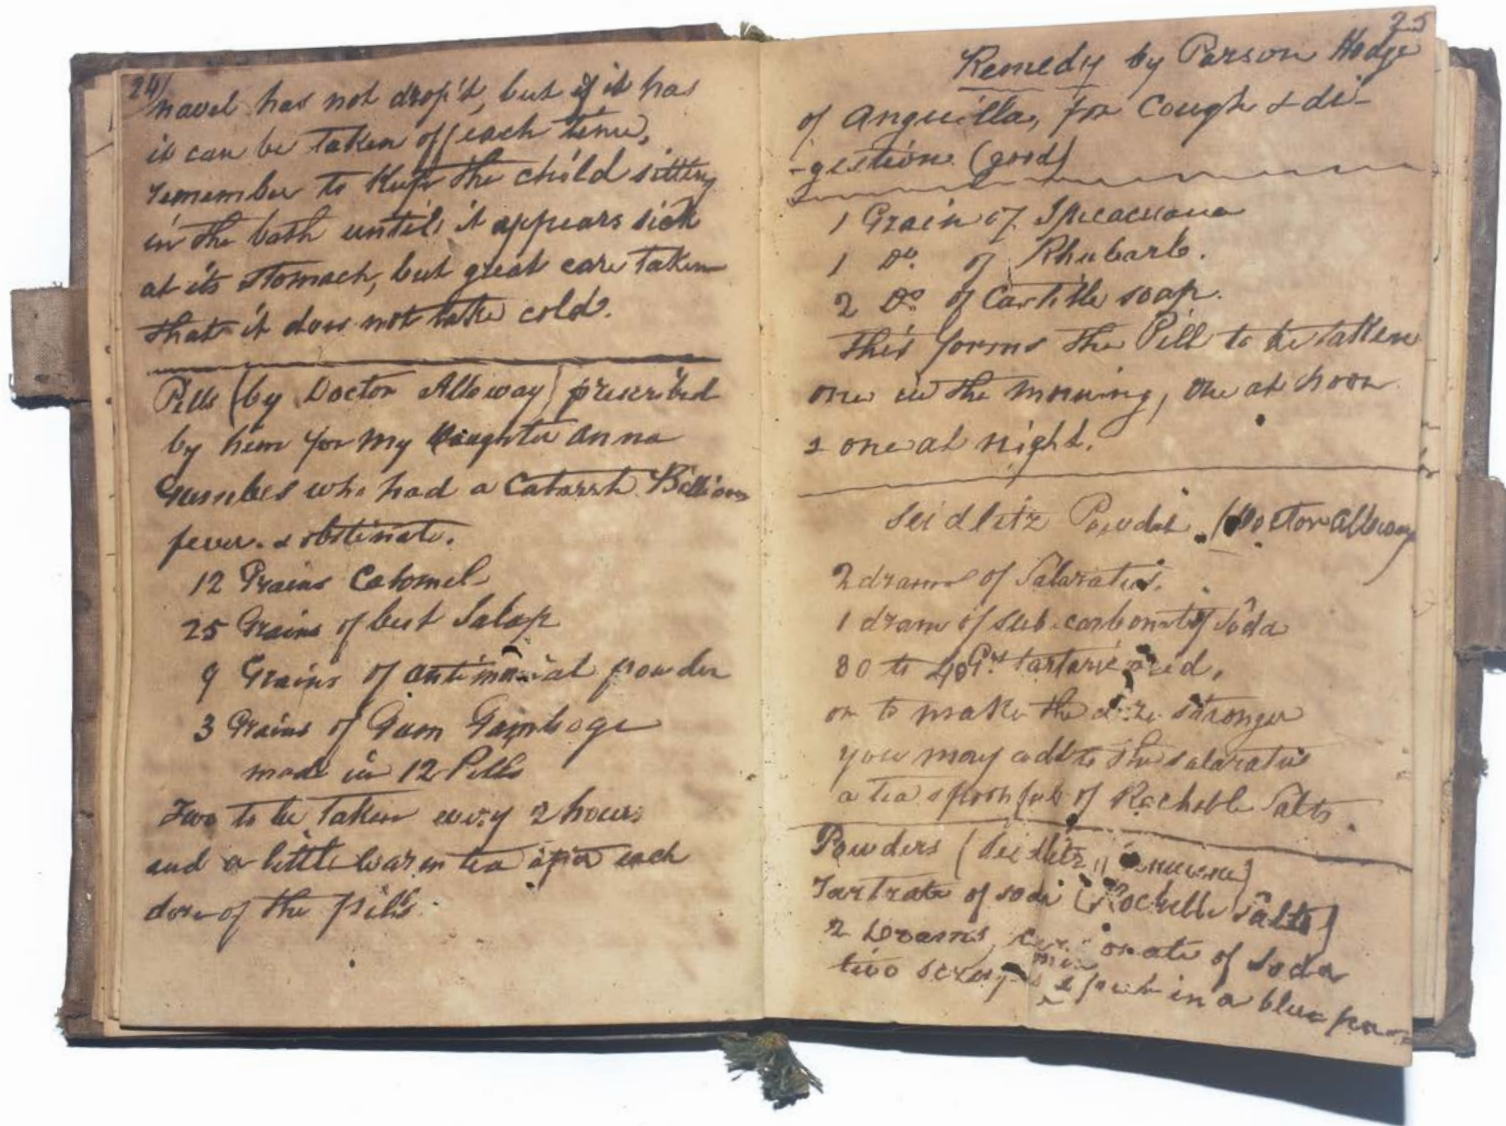 24
navel has not drop'd, but if it has
it can be taken off each time,
remember to keep the child sitting
in the bath until it appears sick
at its stomach, but great care taken
that it does not take cold.
Pills (by Doctor Alloway) prescribed
by him for my daughter Anna
who had a Catarrh Billious
fever & obstinate.
12 Grains Calomel
25 Grains of best Jalap
9 Grains of antimonial powder
3 Grains of Gum Gamboge
made in 12 Pills
Two to be taken every 2 hours
and a little warm tea after each
dose of the pills
25
Remedy by Parson Hodge
of Anguilla, for Cough & di-
-gestion (good)
1 Grain of Ipecacuana
1 Do. of Rhubarb.
2 Do. of Castille soap.
This forms the Pill to be taken
one in the morning, one at noon
& one at night.
Seidlitz Powder (Doctor Alloway
2 drams of Salaratus.
1 dram of sub carbonate of Soda
30 to 40 Grs tartaric acid,
or to make the stronger
you may add to the salaratus
a tea spoonful of Rochelle Salts.
Powders (Seidlitz
Tartrate of soda (Rochelle Salts)
2 Drams, carbonate of Soda
two & put in a blue paper